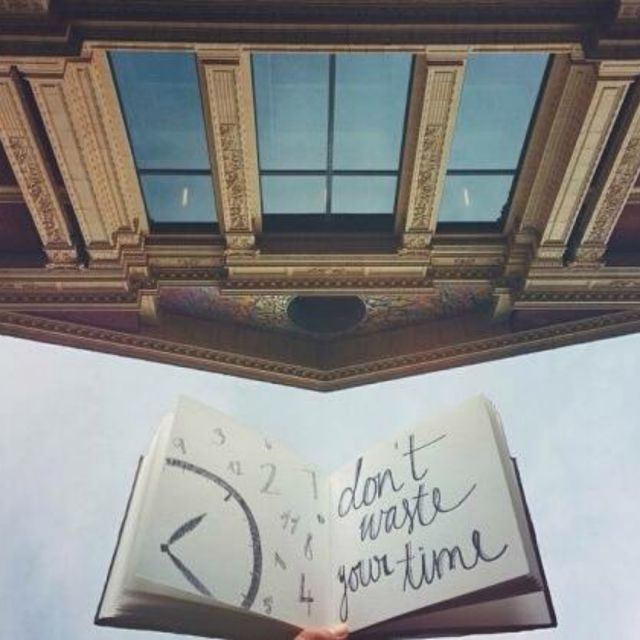 9 3
12 2 7
8
4
don't
waste
your time